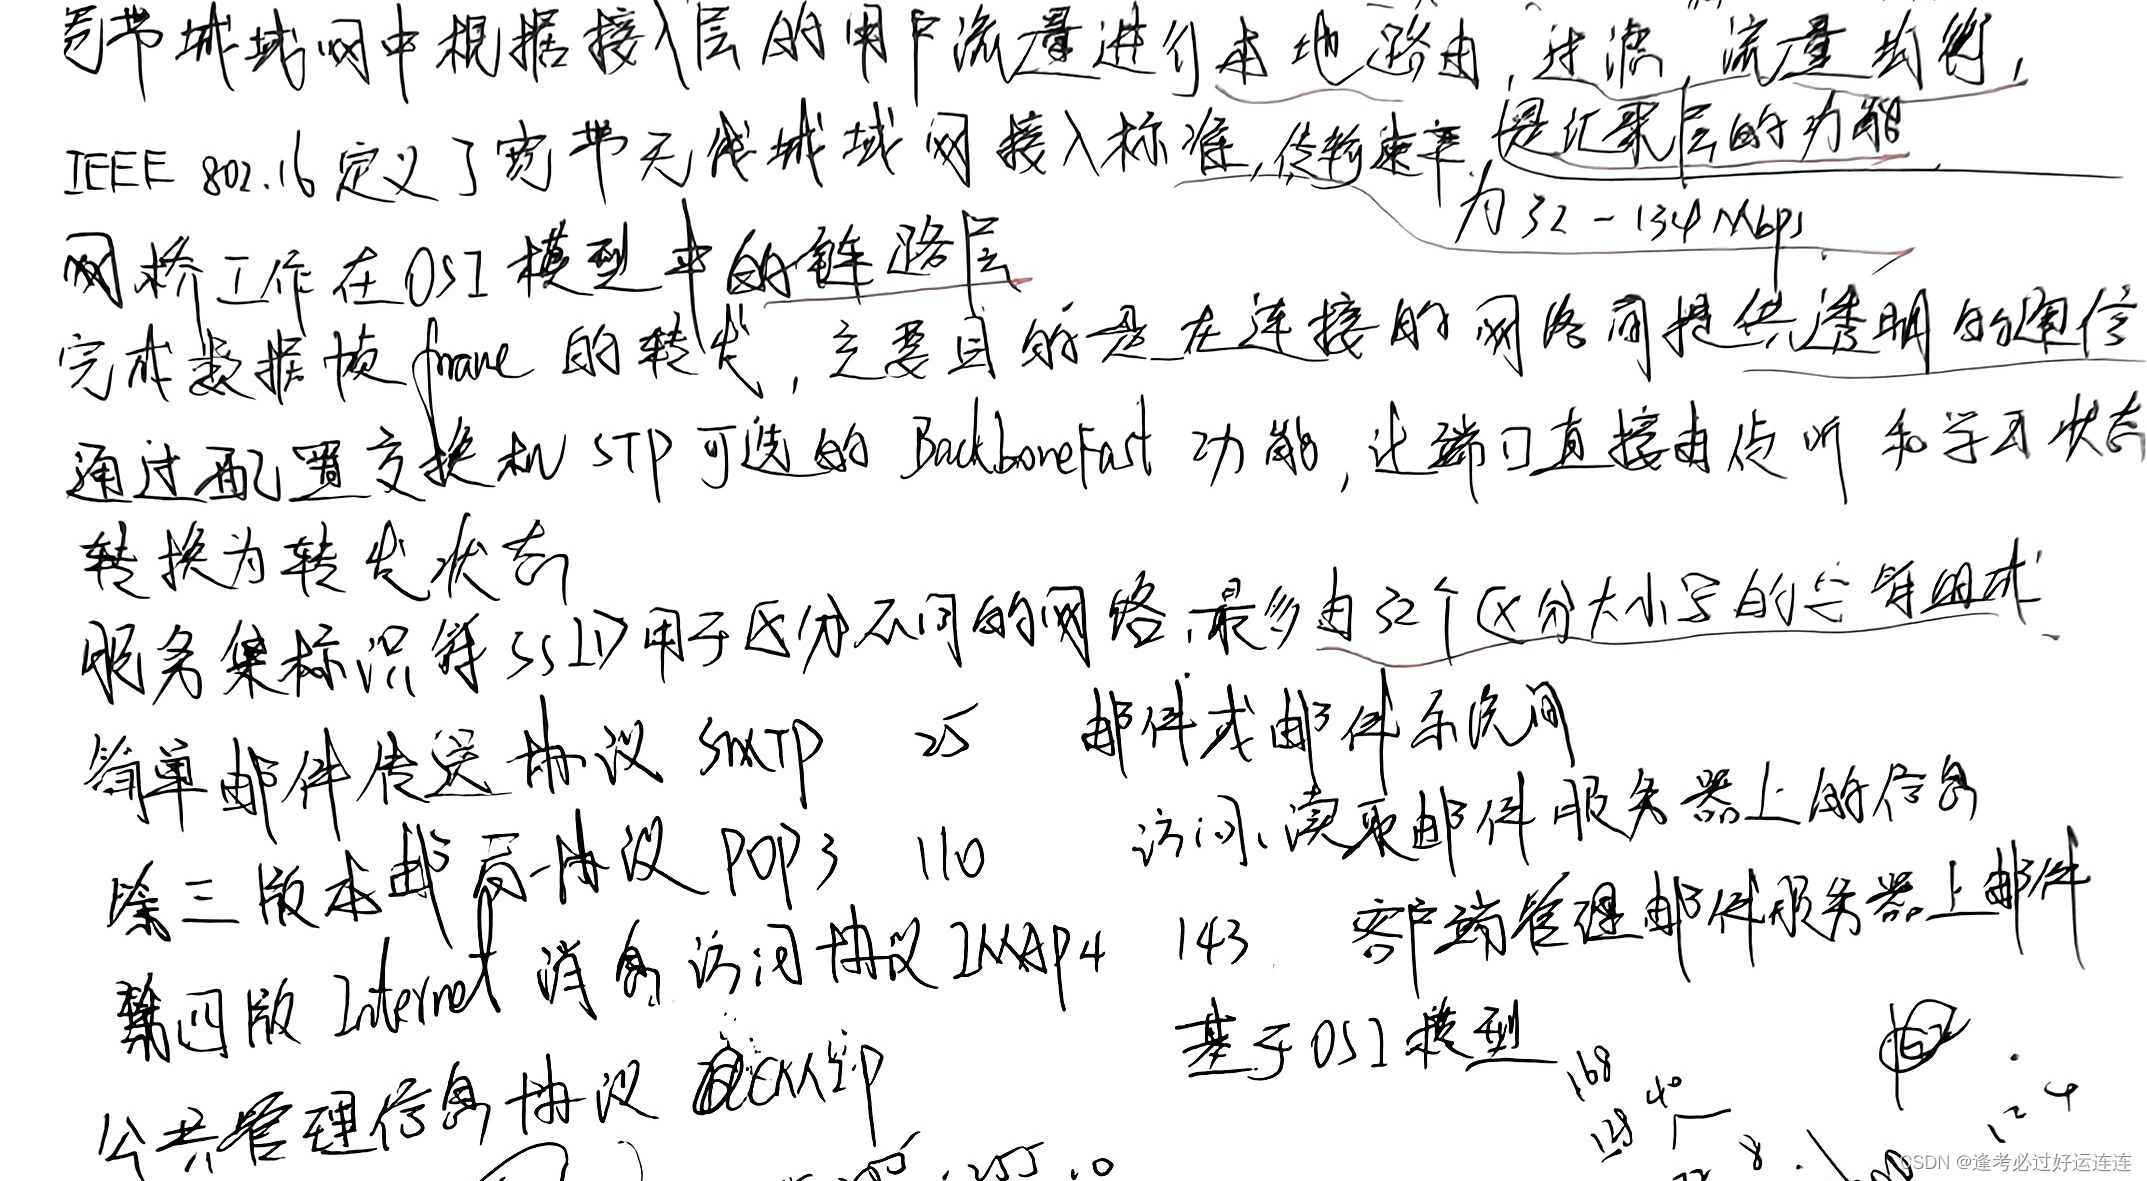 宽带城域网中根据接入层的用户流量进行本地路由,过滤,流量均衡,
是汇聚层的功能
IEEE 802.16定义了宽带无线城域网接入标准,传输速率
为32-134Mbps.
网桥工作在OSI模型中的链路层
完成数据帧frame的转发,主要目的是在连接的网络间提供透明的通信
通过配置交换机STP可选的BackboneFast功能,让端口直接由侦听和学习状态
转换为转发状态
服务集标识符SSID用于区分不同的网络,最多由32个区分大小写的字符组成
简单邮件传送协议 SMTP 25 邮件或邮件系统间
第三版本邮局协议 POP3 110 访问、读取邮件服务器上的信息
第四版Internet消息访问协议IMAP4 143 客户端管理邮件服务器上邮件
公共管理信息协议 CMIP 基于OSI模型
168
40
128
8
.255.0
CSDN @逢考必过好运连连